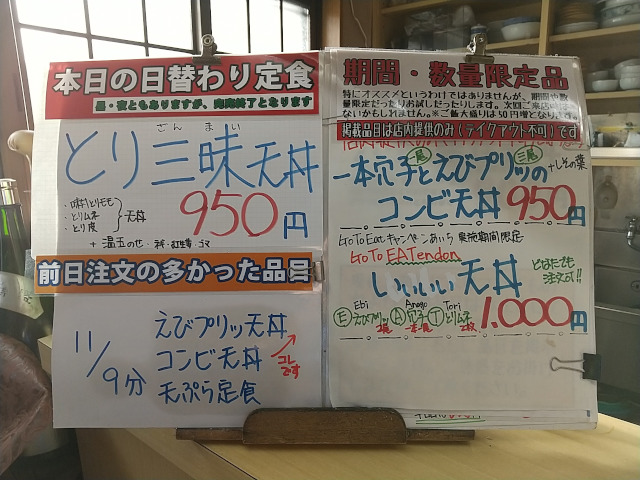 本日の日替わり定食
昼・夜ともありますが、肉完終了となります
ざんまい
とり三昧天丼
・味付とりモモ
・とりムネ
・とり皮
天丼
950円
+温玉のせ・
前日注文の多かった品目
11/9分
えびプリッ天丼
コンビ天丼
天ぷら定食
コレです
期間・数量限定品
特にオススメというわけではありませんが、期間や数
量限定だったりお試しだったりします。次回ご来店時は
ないかもしれません。※ご飯大盛りは50円増となります
掲載品目は店内提供のみ(テイクアウト不可)です
一尾
三尾
一本穴子とえびプリッの
+しその葉
コンビ天丼950円
GoToEatキャンペーンあいち 実施期間限定
GoTo EATendon
いいいい天丼
どなたでも
注文可!!
1.000円
Ebi Anago Tori
Ⓔえびプリッ Ⓐ穴子 Ⓣとりムネ
2尾 一本 2枚